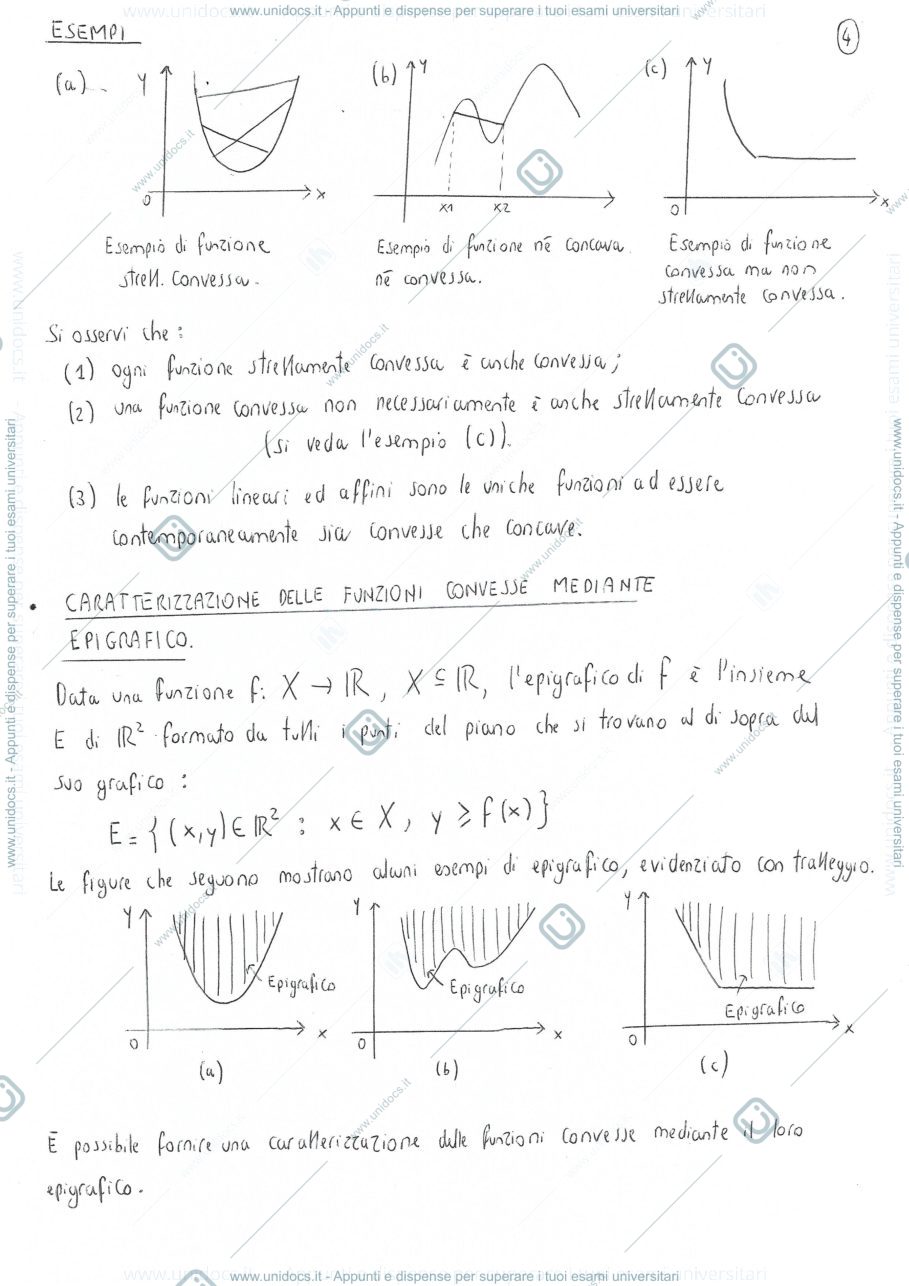 www.unidocs.it - Appunti e dispense per superare i tuoi esami universitari
ESEMPI
4
(a)
Y
X
0
(b)
Y
X1
X2
(c)
Y
X
0
Esempio di funzione
strett. convessa.
Esempio di funzione nē concava
nē convessa.
Esempio di funzione
convessa ma non
strettamente convessa.
Si osservi che:
(1) ogni funzione strettamente convessa ē anche convessa;
(2) una funzione convessa non necessariamente ē anche strettamente convessa
(si veda l'esempio (c)).
(3) le funzioni lineari ed affini sono le uniche funzioni ad essere
contemporaneamente sia convesse che concave.
• CARATTERIZZAZIONE DELLE FUNZIONI CONVESSE MEDIANTE
EPIGRAFICO.
Data una funzione f: X → ℝ, X ⊆ ℝ, l'epigrafico di f ē l'insieme
E di ℝ² formato da tutti i punti del piano che si trovano al di sopra del
suo grafico:
E = {(x,y) ∈ ℝ² : x ∈ X, y ≥ f(x)}
Le figure che seguono mostrano alcuni esempi di epigrafico, evidenziato con tratteggio.
Y
Epigrafico
0
X
(a)
Y
Epigrafico
0
X
(b)
Y
Epigrafico
0
X
(c)
Ē possibile fornire una caratterizzazione delle funzioni convesse mediante il loro
epigrafico.
www.unidocs.it - Appunti e dispense per superare i tuoi esami universitari
www.unidocs.it - Appunti e dispense per superare i tuoi esami universitari
www.unidocs.it - Appunti e dispense per superare i tuoi esami universitari